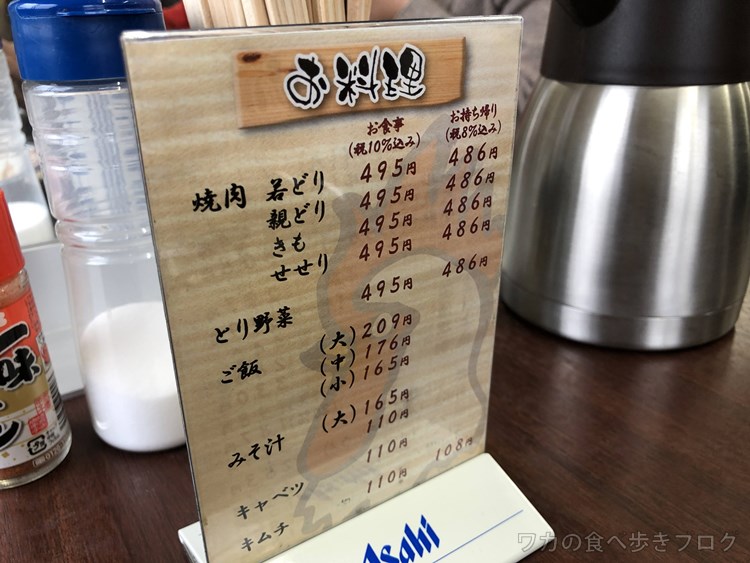 お料理
お食事
(税10%込み)
お持ち帰り
(税8%込み)
焼肉 若どり 495円 486円
親どり 495円 486円
きも 495円 486円
せせり 495円 486円
とり野菜 495円 486円
ご飯 (大) 209円
(中) 176円
(小) 165円
みそ汁 (大) 165円
110円
キャベツ 110円
キムチ 110円 108円
Asahi
一味
ワカの食べ歩きブログ